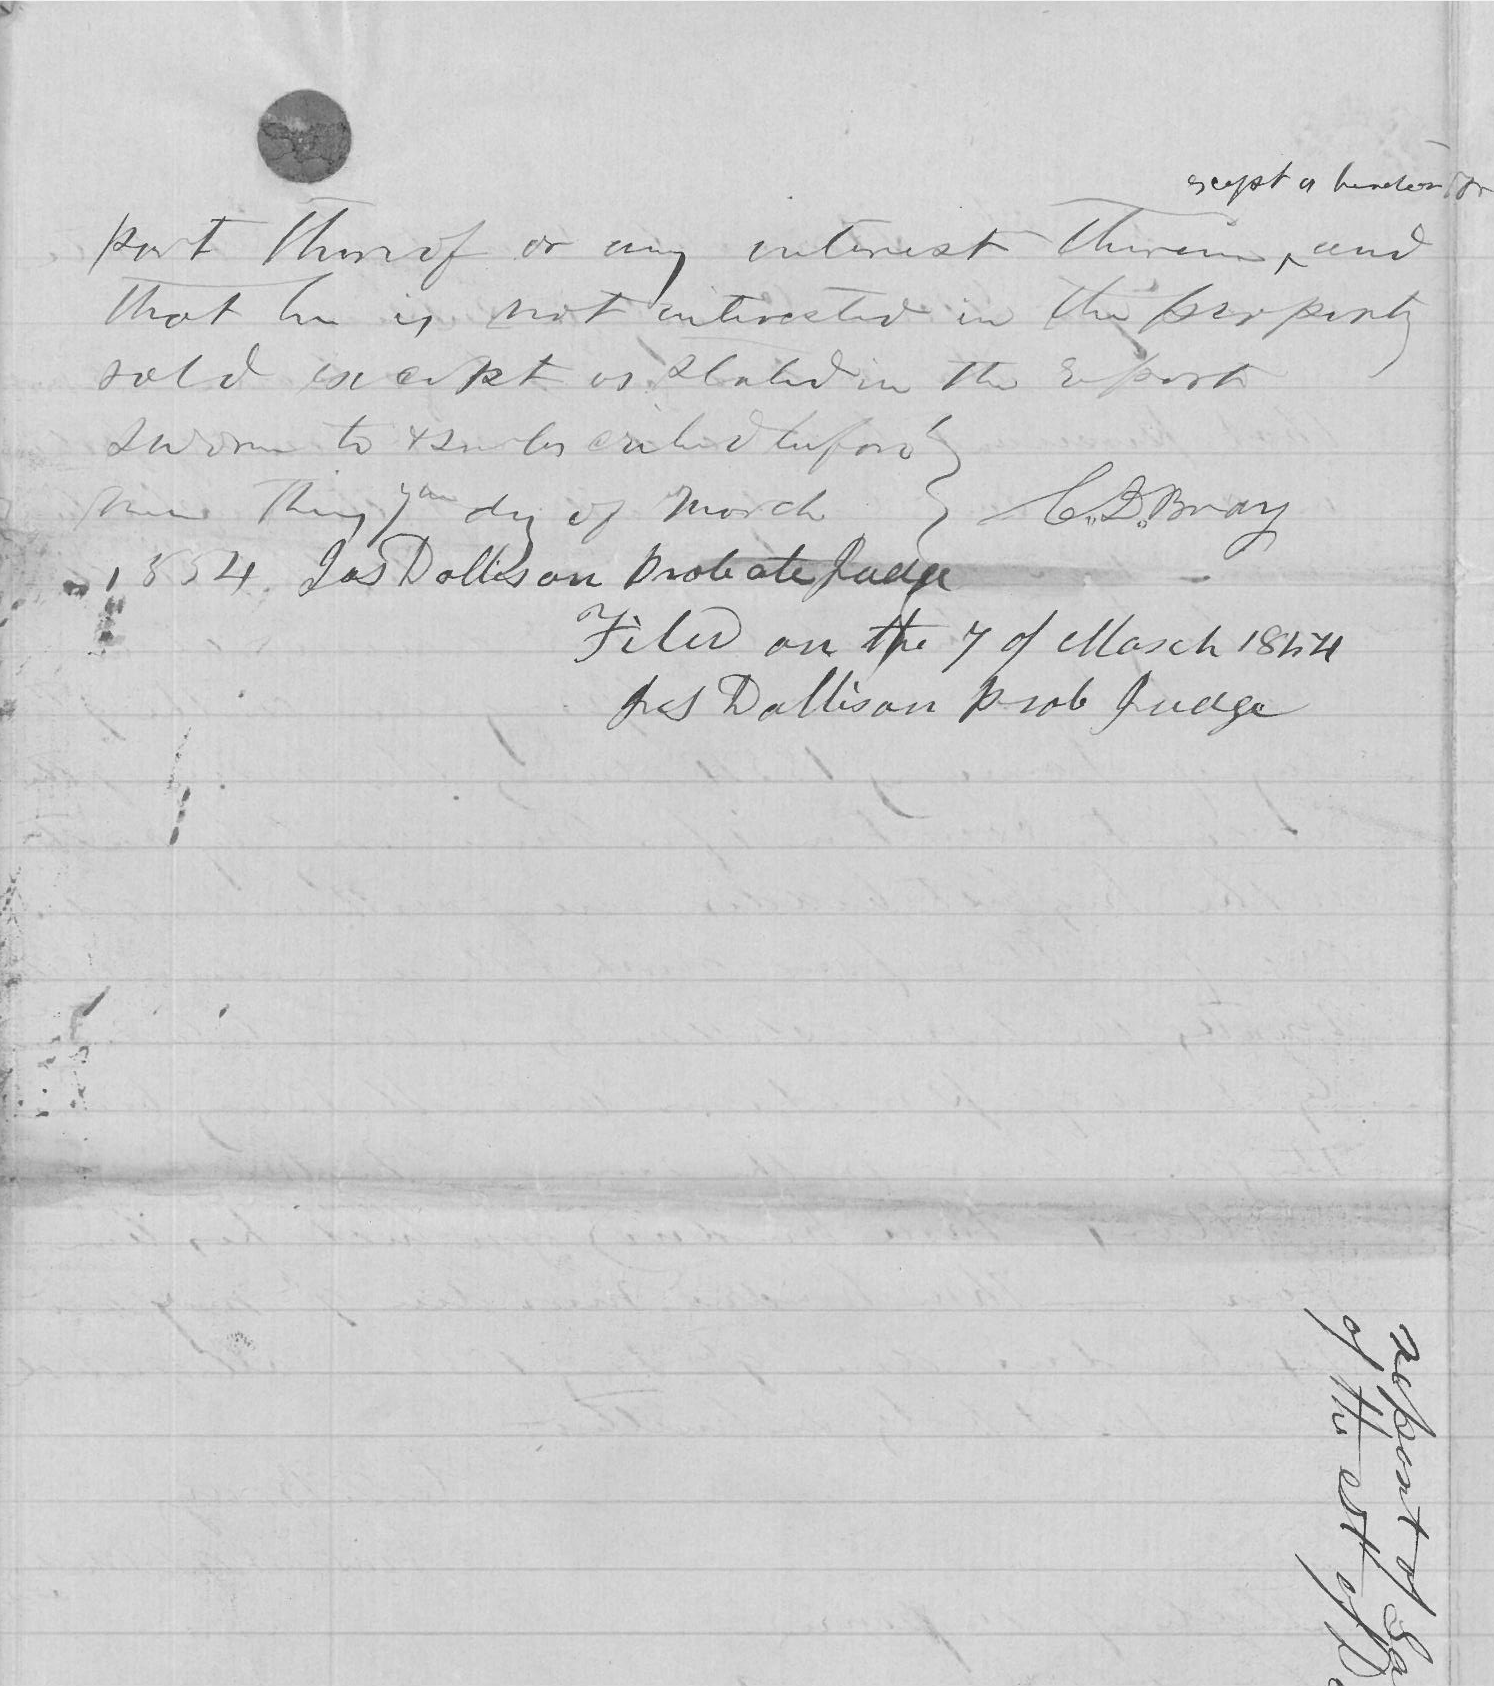 except a
part thereof or any interest therein, and
that he is not interested in the property
sold except as stated in the report
sworn to & subscribed before
me this 7th day of March C. D. Bray
1854 Jas Dallison Probate Judge
Filed on the 7 of March 1854
Jas Dallison Prob Judge
report of Sa
of the est of D